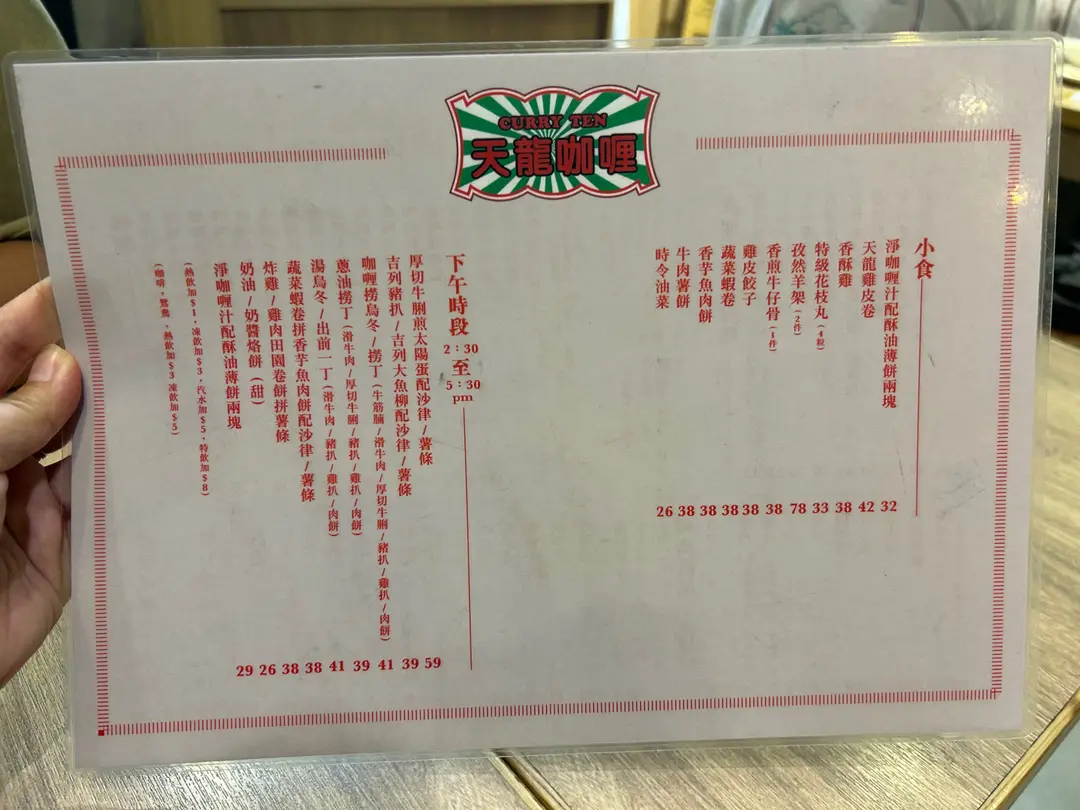 CURRY TEN
天龍咖喱
小食
淨咖喱汁配酥油薄餅兩塊 32
天龍雞皮卷 42
香酥雞 38
特級花枝丸(4粒) 33
孜然羊架(2件) 78
香煎牛仔骨(1件) 38
雞皮餃子 38
蔬菜蝦卷 38
香芋魚肉餅 38
牛肉薯餅 38
時令油菜 26
下午時段 2:30 至 5:30 pm
厚切牛脷煎太陽蛋配沙律/薯條 59
吉列豬扒/吉列大魚柳配沙律/薯條 39
咖喱撈烏冬/撈丁(牛筋腩/滑牛肉/厚切牛脷/豬扒/雞扒/肉餅) 41
蔥油撈丁(滑牛肉/厚切牛脷/豬扒/雞扒/肉餅) 39
湯烏冬/出前一丁(滑牛肉/豬扒/雞扒/肉餅) 41
蔬菜蝦卷拼香芋魚肉餅配沙律/薯條 38
炸雞/雞肉田園卷餅拼薯條 38
奶油/奶醬烙餅(甜) 26
淨咖喱汁配酥油薄餅兩塊 29
(熱飲加$1,凍飲加$3,汽水加$5,特飲加$8)
(咖啡,鴛鴦,熱飲加$3凍飲加$5)